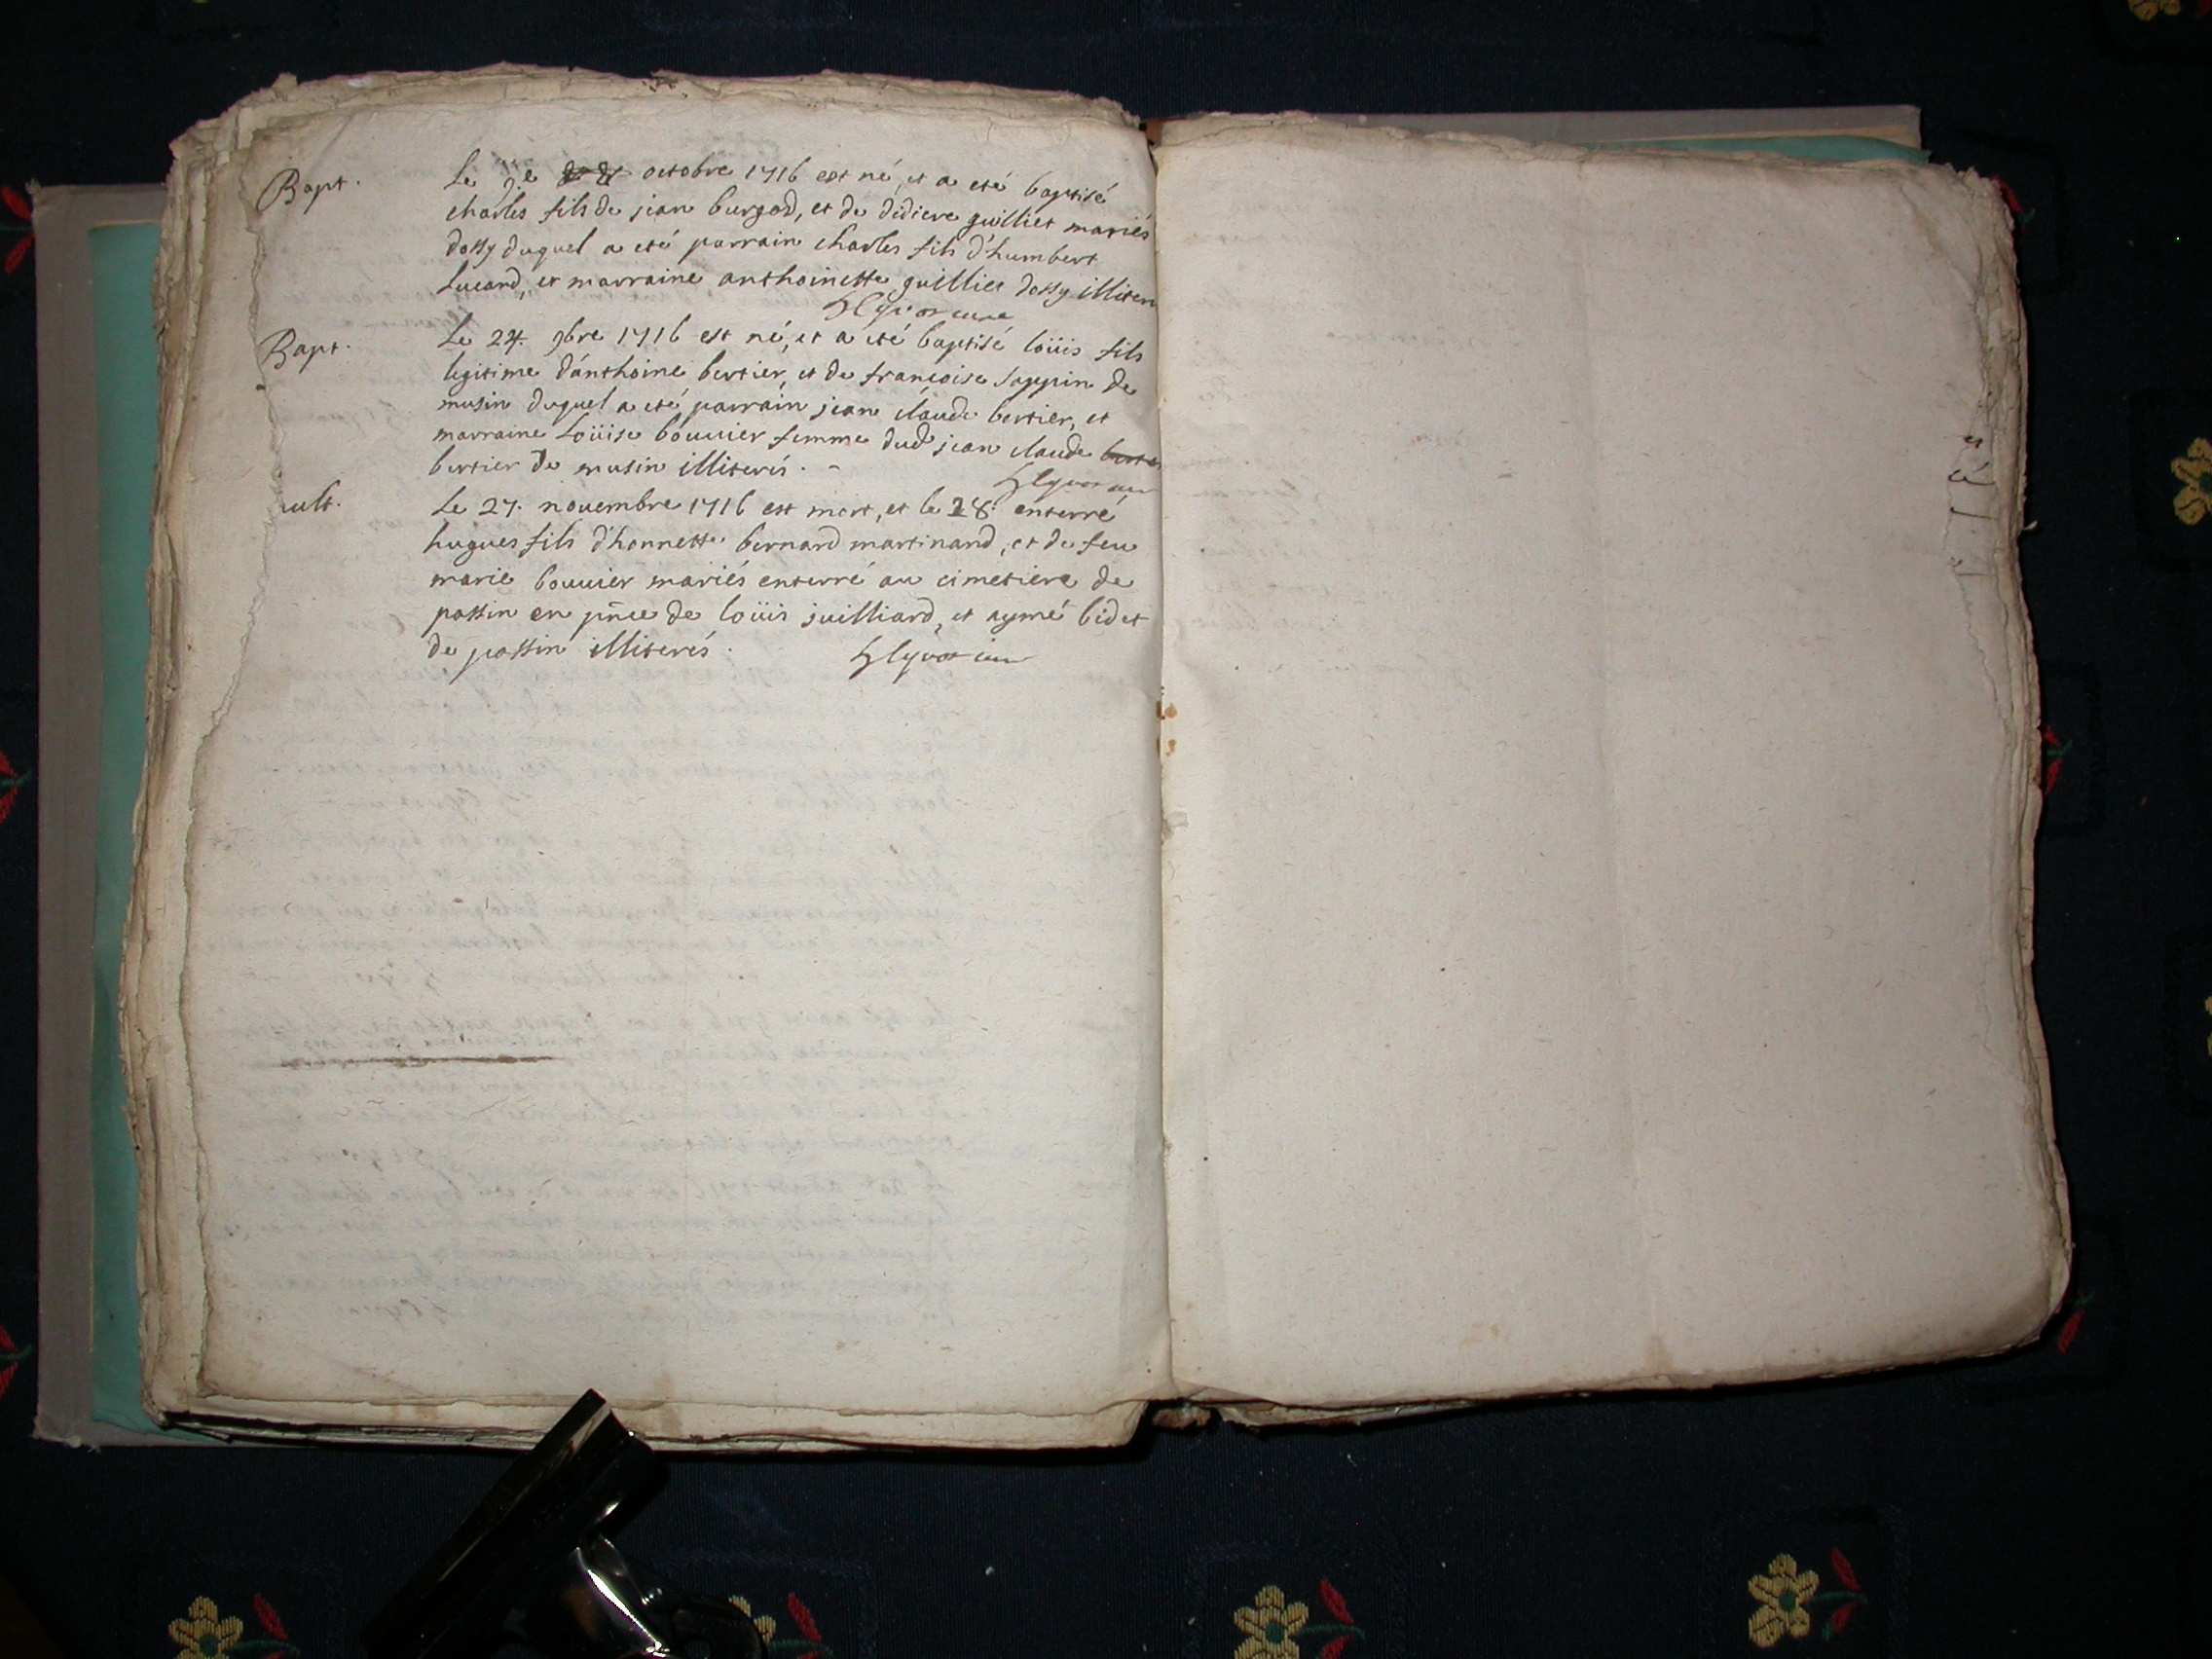 Bapt. Le 9.e octobre 1716 est né, et a eté baptisé
charles fils de jean burgod, et de didiere guilliet mariés
dossy duquel a eté parrain charles fils d'humbert
Lucard, et marraine anthoinette guilliet dossy illiter
Bapt. Le 24. 9bre 1716 est né, et a eté baptisé loüis fils
legitime d'anthoine bertier, et de françoise sappin de
musin duquel a eté parrain jean claude bertier, et
marraine Loüise bouuier femme dud jean claude
bertier de musin illiterés.
ult. Le 27. nouembre 1716 est mort, et le 28. enterré
hugues fils d'honnette bernard martinand, et de feue
marie bouuier mariés enterré au cimetiere de
passin en pnce de loüis juilliard, et aymé bidet
de passin illiterés.